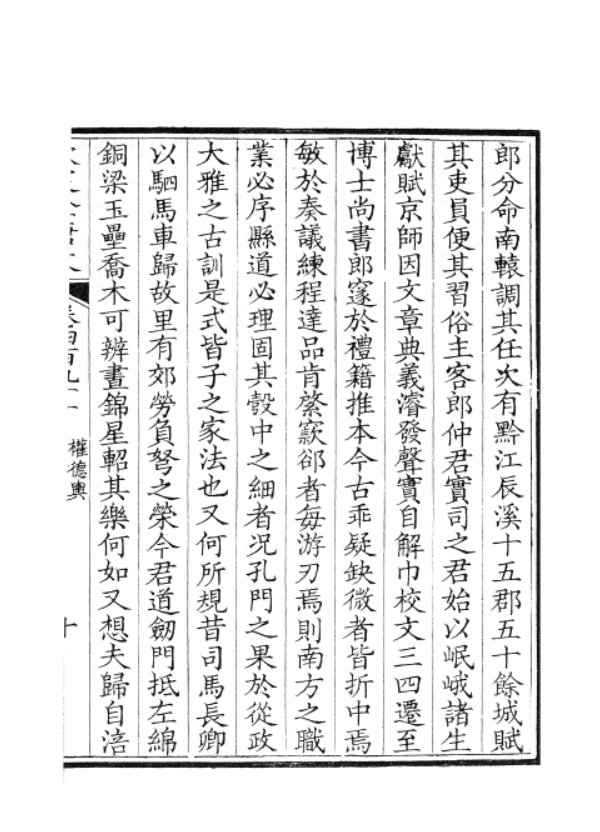 郎分命南轅調其任次有黔江辰溪十五郡五十餘城賦
其吏員便其習俗主客郎仲君實司之君始以岷峨諸生
獻賦京師因文章典義濬發聲實自解巾校文三四遷至
博士尚書郎窾於禮籍推本今古乖疑缺微者皆折中焉
敏於奏議練程達品肯綮窾郤者每游刃焉則南方之職
業必序縣道必理固其彀中之細者况孔門之果於從政
大雅之古訓是式皆子之家法也又何所規昔司馬長卿
以駟馬車歸故里有郊勞負弩之榮今君道劒門抵左綿
銅梁玉壘喬木可辨晝錦星軺其樂何如又想夫歸自涪
卷四百九十
權德輿
十